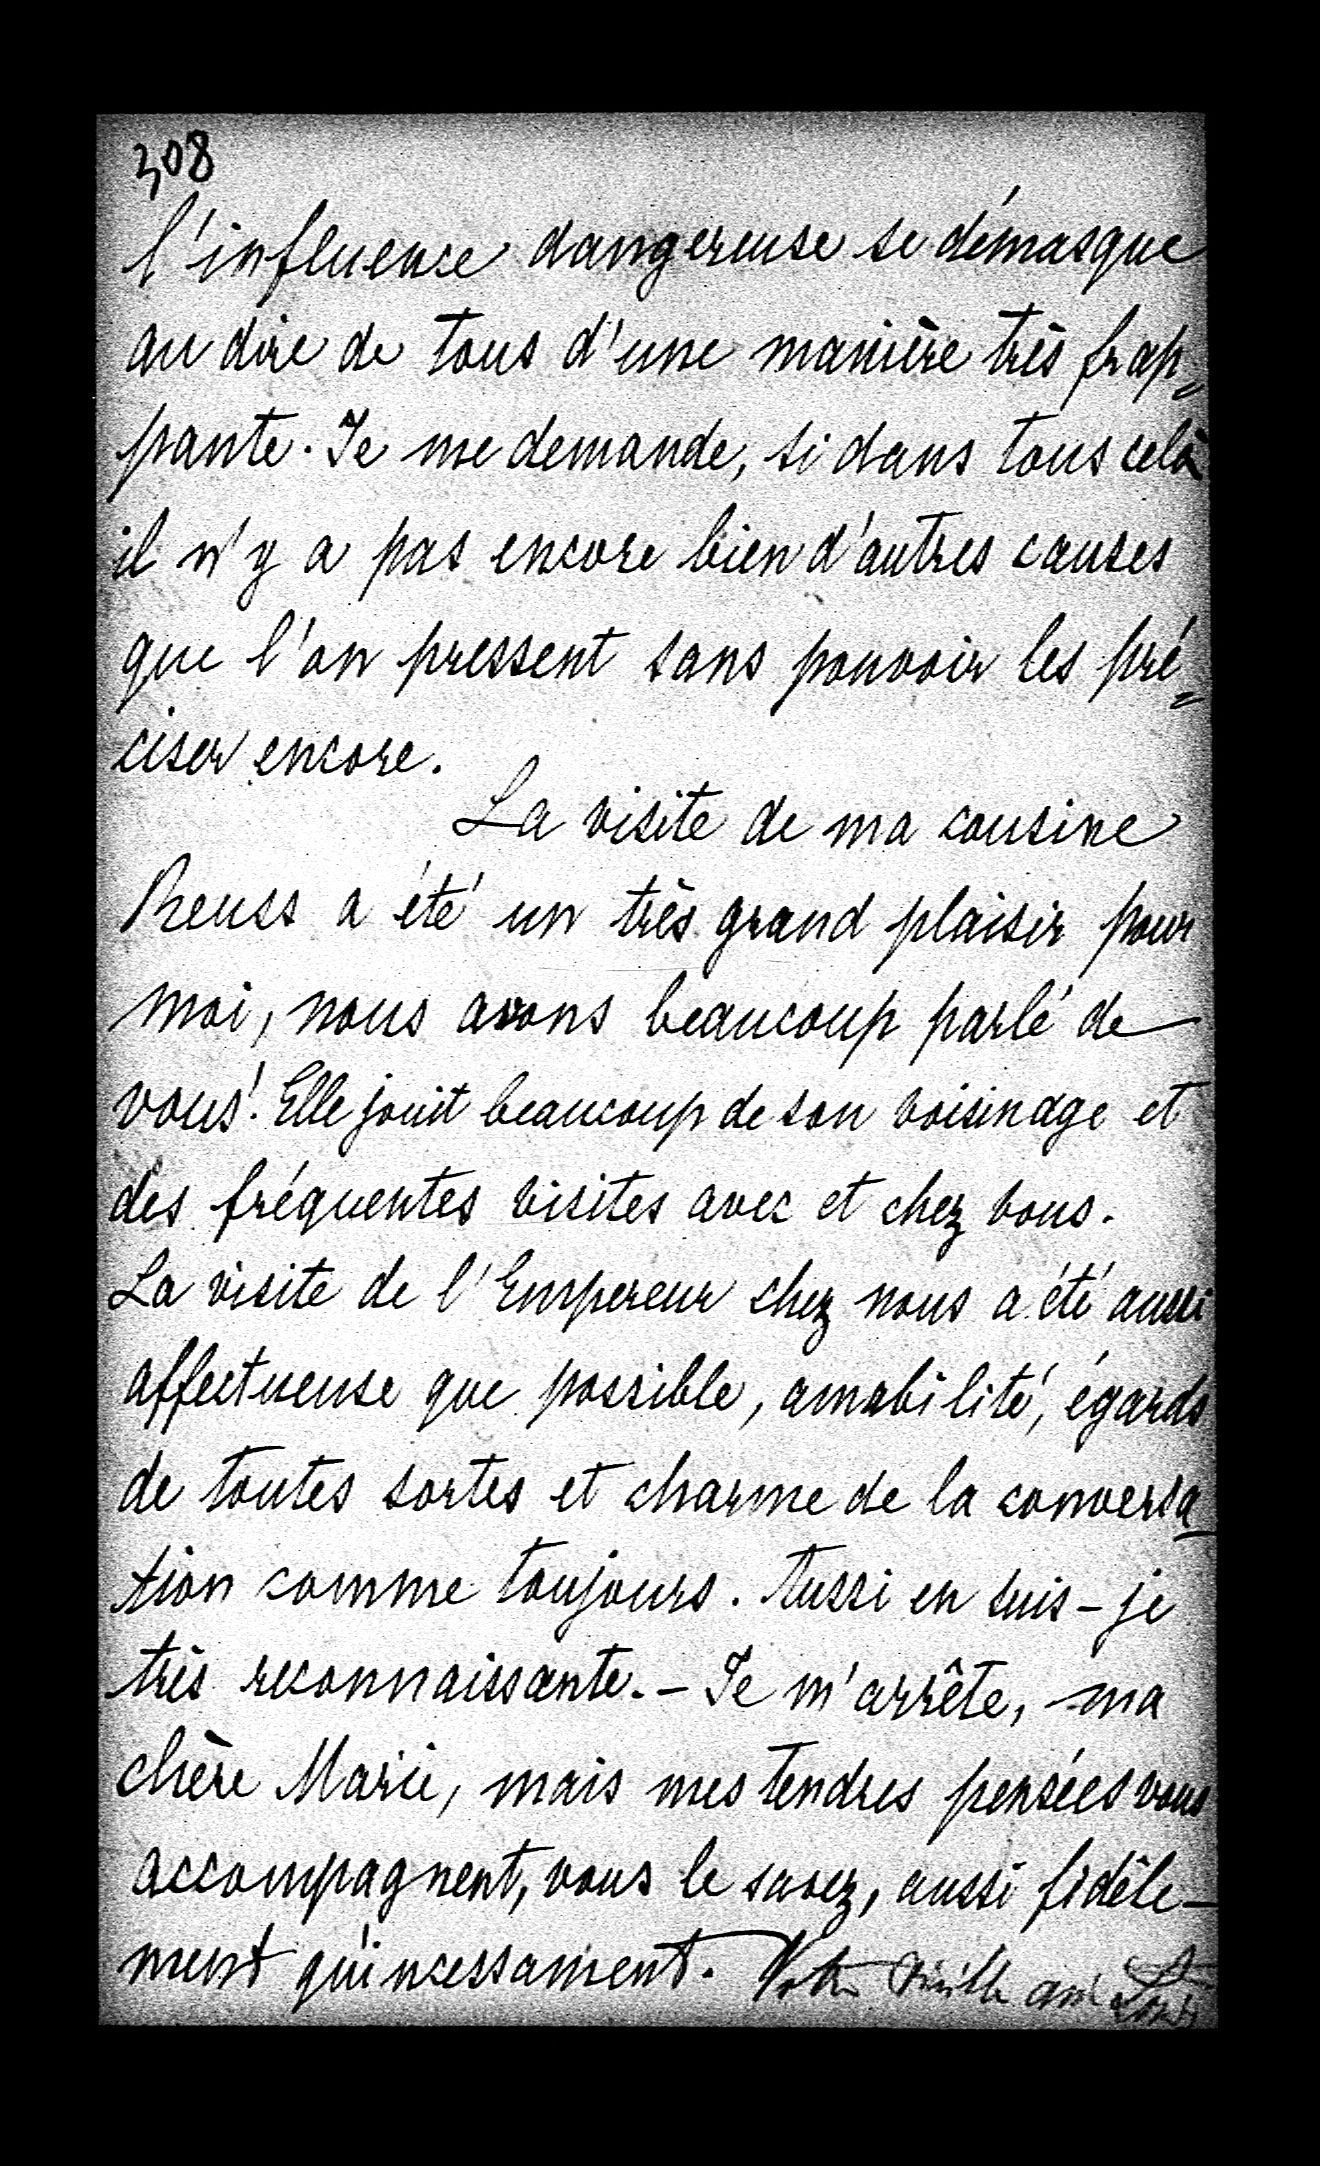 308
l'influence dangereuse se démasque
au dire de tous d'une manière très frap=
pante. Je me demande, si dans tous celà
il n'y a pas encore bien d'autres causes
que l'on pressent sans pouvoir les pré=
ciser encore.
La visite de ma cousine
Reuss a été un très grand plaisir pour
moi, nous avons beaucoup parlé de
vous! Elle jouit beaucoup de son voisinage et
des fréquentes visites avec et chez vous.
La visite de l'Empereur chez nous a été aussi
affectueuse que possible, amabilité, égards
de toutes sortes et charme de la conversa
tion comme toujours. Aussi en suis-je
très reconnaissante. - Je m'arrête, ma
chère Marie, mais mes tendres pensées vous
accompagnent, vous le savez, aussi fidèle-
ment qu'incessament. Votre vieille amie